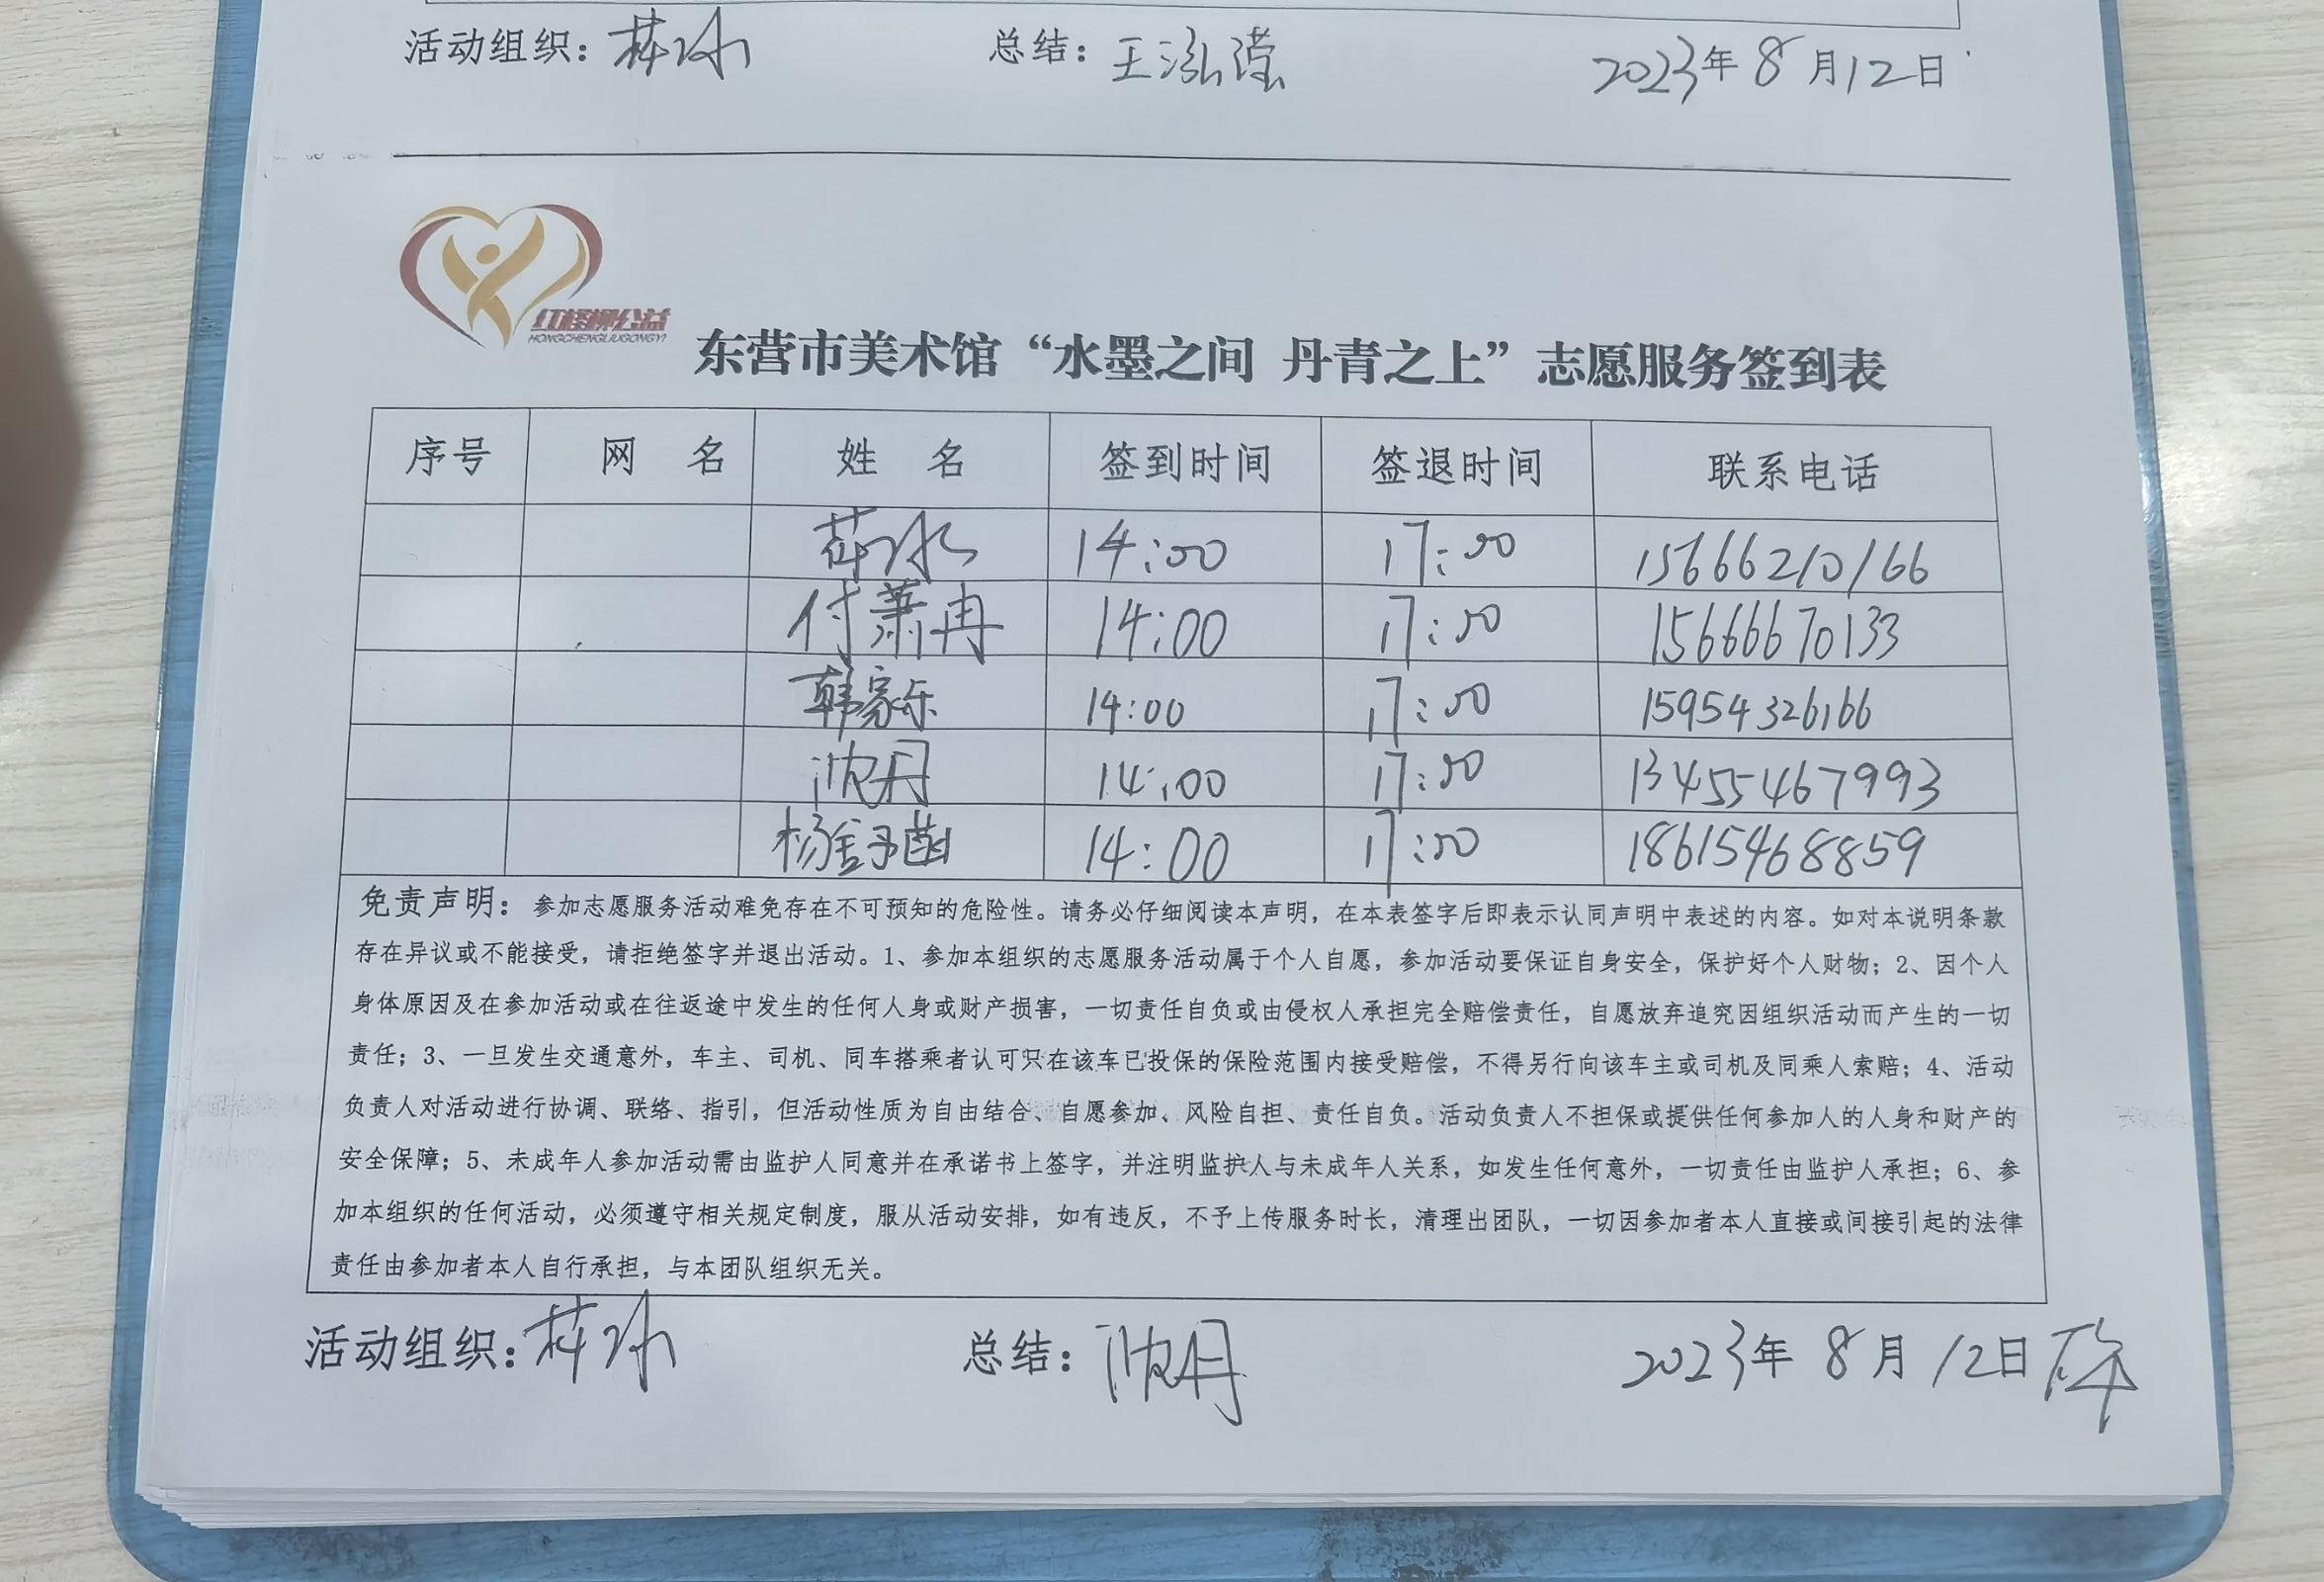 活动组织： 总结：王泓滢 2023年8月12日
红柽柳公益
HONGCHENGLIUGONGYI
东营市美术馆“水墨之间 丹青之上”志愿服务签到表
序号 网 名 姓 名 签到时间 签退时间 联系电话
14:00 17:00 15666210166
付萧冉 14:00 17:00 15666670133
韩家乐 14:00 17:00 15954326166
沈丹 14:00 17:00 13455467993
杨金予菡 14:00 17:00 18615468859
免责声明：参加志愿服务活动难免存在不可预知的危险性。请务必仔细阅读本声明，在本表签字后即表示认同声明中表述的内容。如对本说明条款
存在异议或不能接受，请拒绝签字并退出活动。1、参加本组织的志愿服务活动属于个人自愿，参加活动要保证自身安全，保护好个人财物；2、因个人
身体原因及在参加活动或在往返途中发生的任何人身或财产损害，一切责任自负或由侵权人承担完全赔偿责任，自愿放弃追究因组织活动而产生的一切
责任；3、一旦发生交通意外，车主、司机、同车搭乘者认可只在该车已投保的保险范围内接受赔偿，不得另行向该车主或司机及同乘人索赔；4、活动
负责人对活动进行协调、联络、指引，但活动性质为自由结合、自愿参加、风险自担、责任自负。活动负责人不担保或提供任何参加人的人身和财产的
安全保障；5、未成年人参加活动需由监护人同意并在承诺书上签字，并注明监护人与未成年人关系，如发生任何意外，一切责任由监护人承担；6、参
加本组织的任何活动，必须遵守相关规定制度，服从活动安排，如有违反，不予上传服务时长，清理出团队，一切因参加者本人直接或间接引起的法律
责任由参加者本人自行承担，与本团队组织无关。
活动组织： 总结：沈丹 2023年8月12日